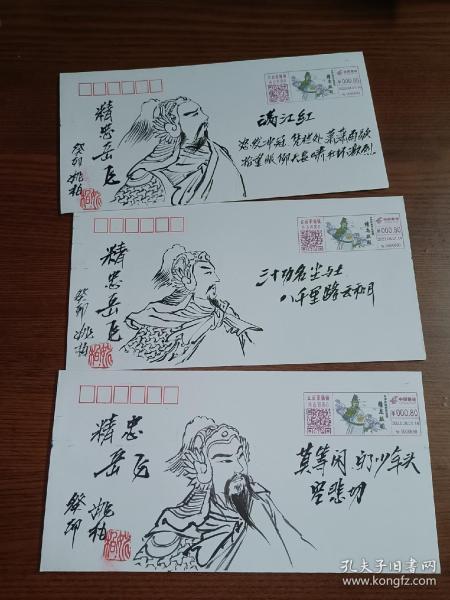 精忠岳飞
癸卯 姚柏
满江红
怒发冲冠 凭栏处 萧萧雨歇
抬望眼 仰天长啸 壮怀激烈
中国邮政
¥000.80
精忠岳飞
癸卯 姚柏
三十功名尘与土
八千里路云和月
中国邮政
¥000.80
精忠
岳飞
癸卯 姚柏
莫等闲 白了少年头
空悲切
中国邮政
¥000.80
孔夫子旧书网
www.kongfz.com